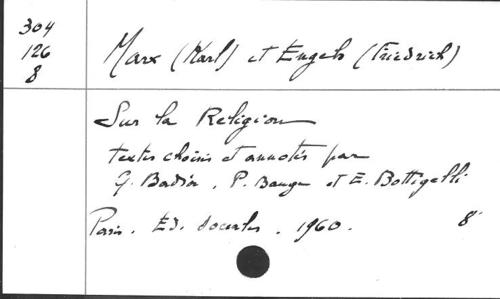 304
126
8
Marx (Karl) et Engels (Friedrich)
Sur la Religion
textes choisis et annotés par
G. Badia, P. Bange et E. Bottigelli
Paris. Ed. sociales. 1960. 8°